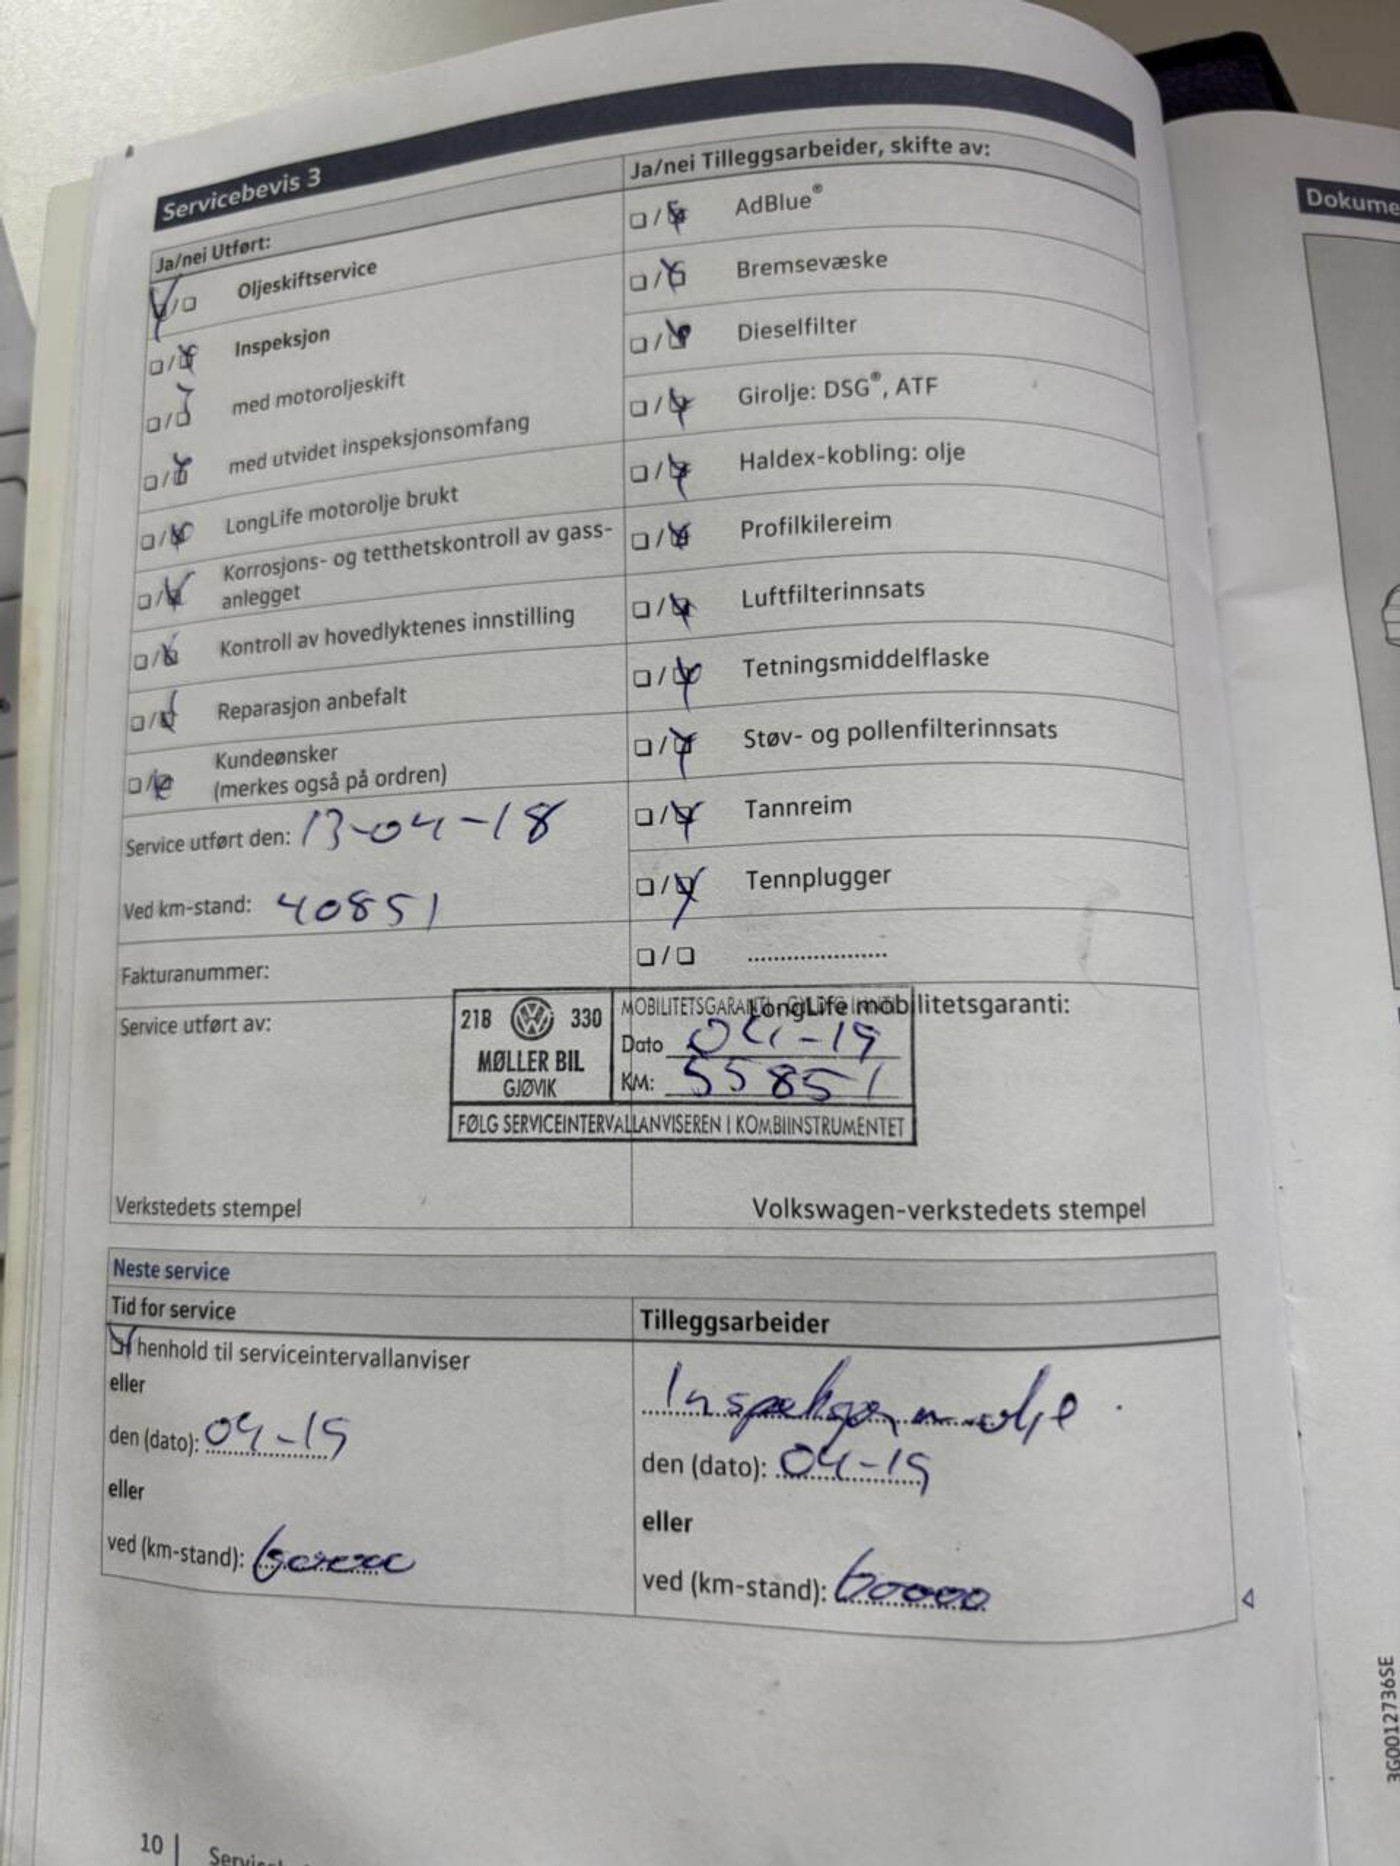 Servicebevis 3
Ja/nei Utført:
☑/☐ Oljeskiftservice
☐/☑ Inspeksjon
☐/☑ med motoroljeskift
☐/☑ med utvidet inspeksjonsomfang
☐/☑ LongLife motorolje brukt
☐/☑ Korrosjons- og tetthetskontroll av gass-
anlegget
☐/☑ Kontroll av hovedlyktenes innstilling
☐/☑ Reparasjon anbefalt
☐/☑ Kundeønsker
(merkes også på ordren)
Service utført den: 13-04-18
Ved km-stand: 40851
Fakturanummer:
Service utført av:
Verkstedets stempel
Ja/nei Tilleggsarbeider, skifte av:
☐/☑ AdBlue®
☐/☑ Bremsevæske
☐/☑ Dieselfilter
☐/☑ Girolje: DSG®, ATF
☐/☑ Haldex-kobling: olje
☐/☑ Profilkilereim
☐/☑ Luftfilterinnsats
☐/☑ Tetningsmiddelflaske
☐/☑ Støv- og pollenfilterinnsats
☐/☑ Tannreim
☐/☑ Tennplugger
☐/☐ ....................
LongLife mobilitetsgaranti:
218 VW 330
MØLLER BIL
GJØVIK
MOBILITETSGARANTI
Dato 04-19
KM: 55851
FØLG SERVICEINTERVALLANVISEREN I KOMBIINSTRUMENTET
Volkswagen-verkstedets stempel
Neste service
Tid for service
☑ henhold til serviceintervallanviser
eller
den (dato): 04-19
eller
ved (km-stand): 60000
Tilleggsarbeider
Inspeksjon m olje
den (dato): 04-19
eller
ved (km-stand): 60000
10
Dokume
3G0012736SE